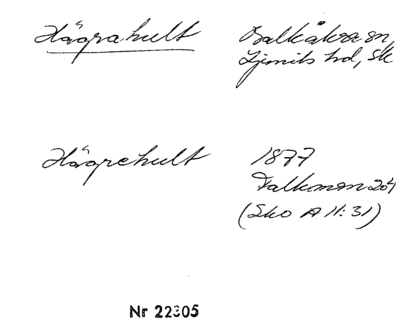 Häggahult Balkåkra sn,
Ljunits hd, Sk
Häggehult 1877
Falkman 204
(Sko A II:31)
Nr 22305